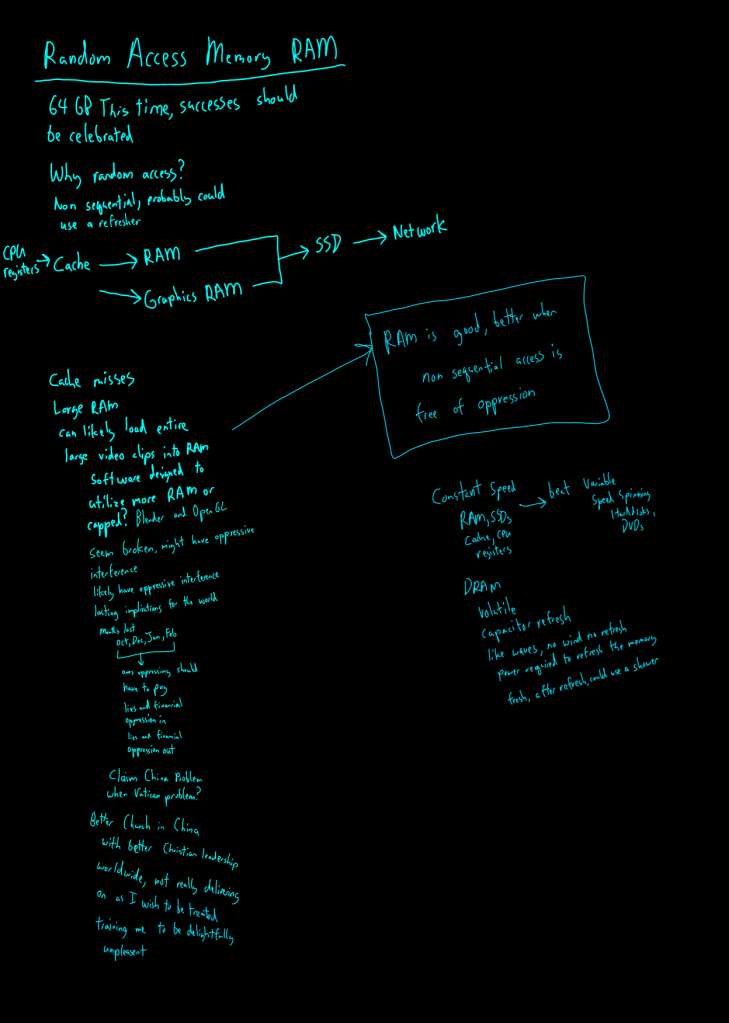 Random Access Memory RAM
64 GB This time, successes should
be celebrated
Why random access?
Non sequential, probably could
use a refresher
CPU
registers
Cache
RAM
Graphics RAM
SSD
Network
RAM is good, better when
non sequential access is
free of oppression
Cache misses
Large RAM
can likely load entire
large video clips into RAM
software designed to
utilize more RAM or
capped? Blender and OpenGL
seem broken, might have oppressive
interference
likely have oppressive interference
lasting implications for the world
Months lost
Oct, Dec, Jan, Feb
ones oppressing should
have to pay
lies and financial
oppression in
lies and financial
oppression out
Claim China Problem
when Vatican problem?
Better Church in China
with better Christian leadership
worldwide, not really delivering
on as I wish to be treated
training me to be delightfully
unpleasent
Constant Speed
RAM, SSDs
Cache, CPU
registers
beat
Variable
Speed Spinning
Harddisks,
DVDs
DRAM
Volatile
Capacitor refresh
like waves, no wind no refresh
power required to refresh the memory
fresh, after refresh, could use a shower